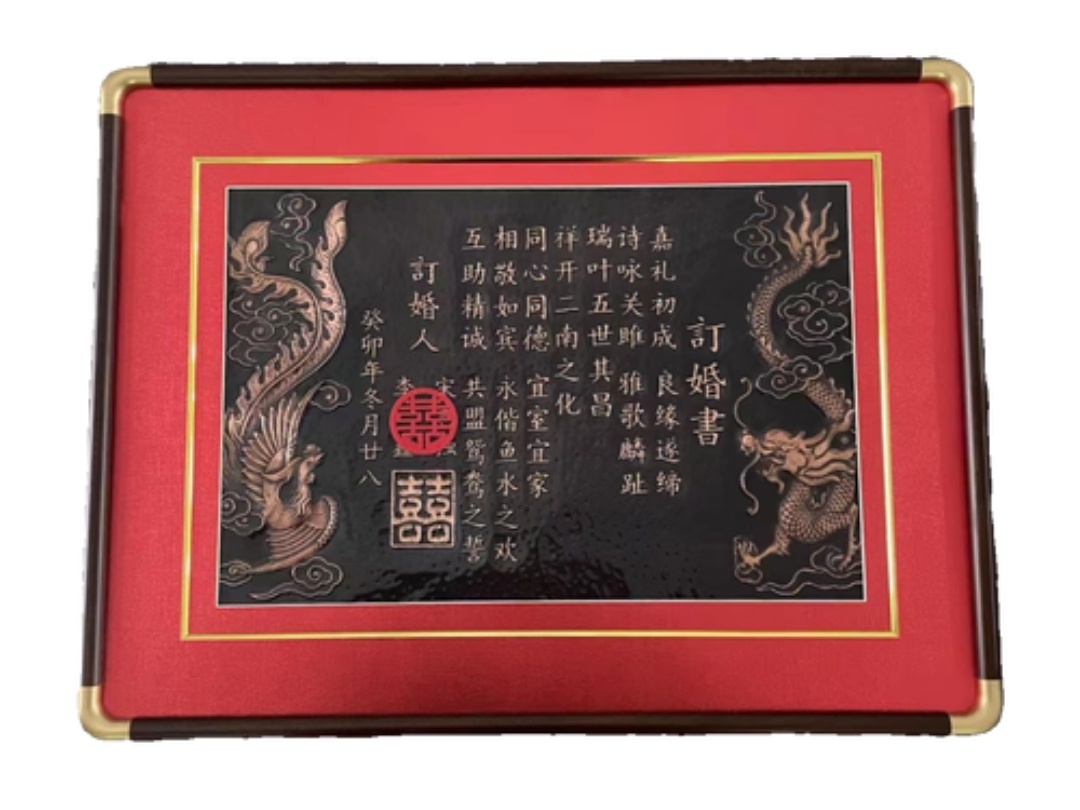 訂婚書
嘉礼初成 良缘遂缔
诗咏关雎 雅歌麟趾
瑞叶五世其昌
祥开二南之化
同心同德 宜室宜家
相敬如宾 永偕鱼水之欢
互助精诚 共盟鸳鸯之誓
訂婚人
宋
李
囍
囍
癸卯年冬月廿八